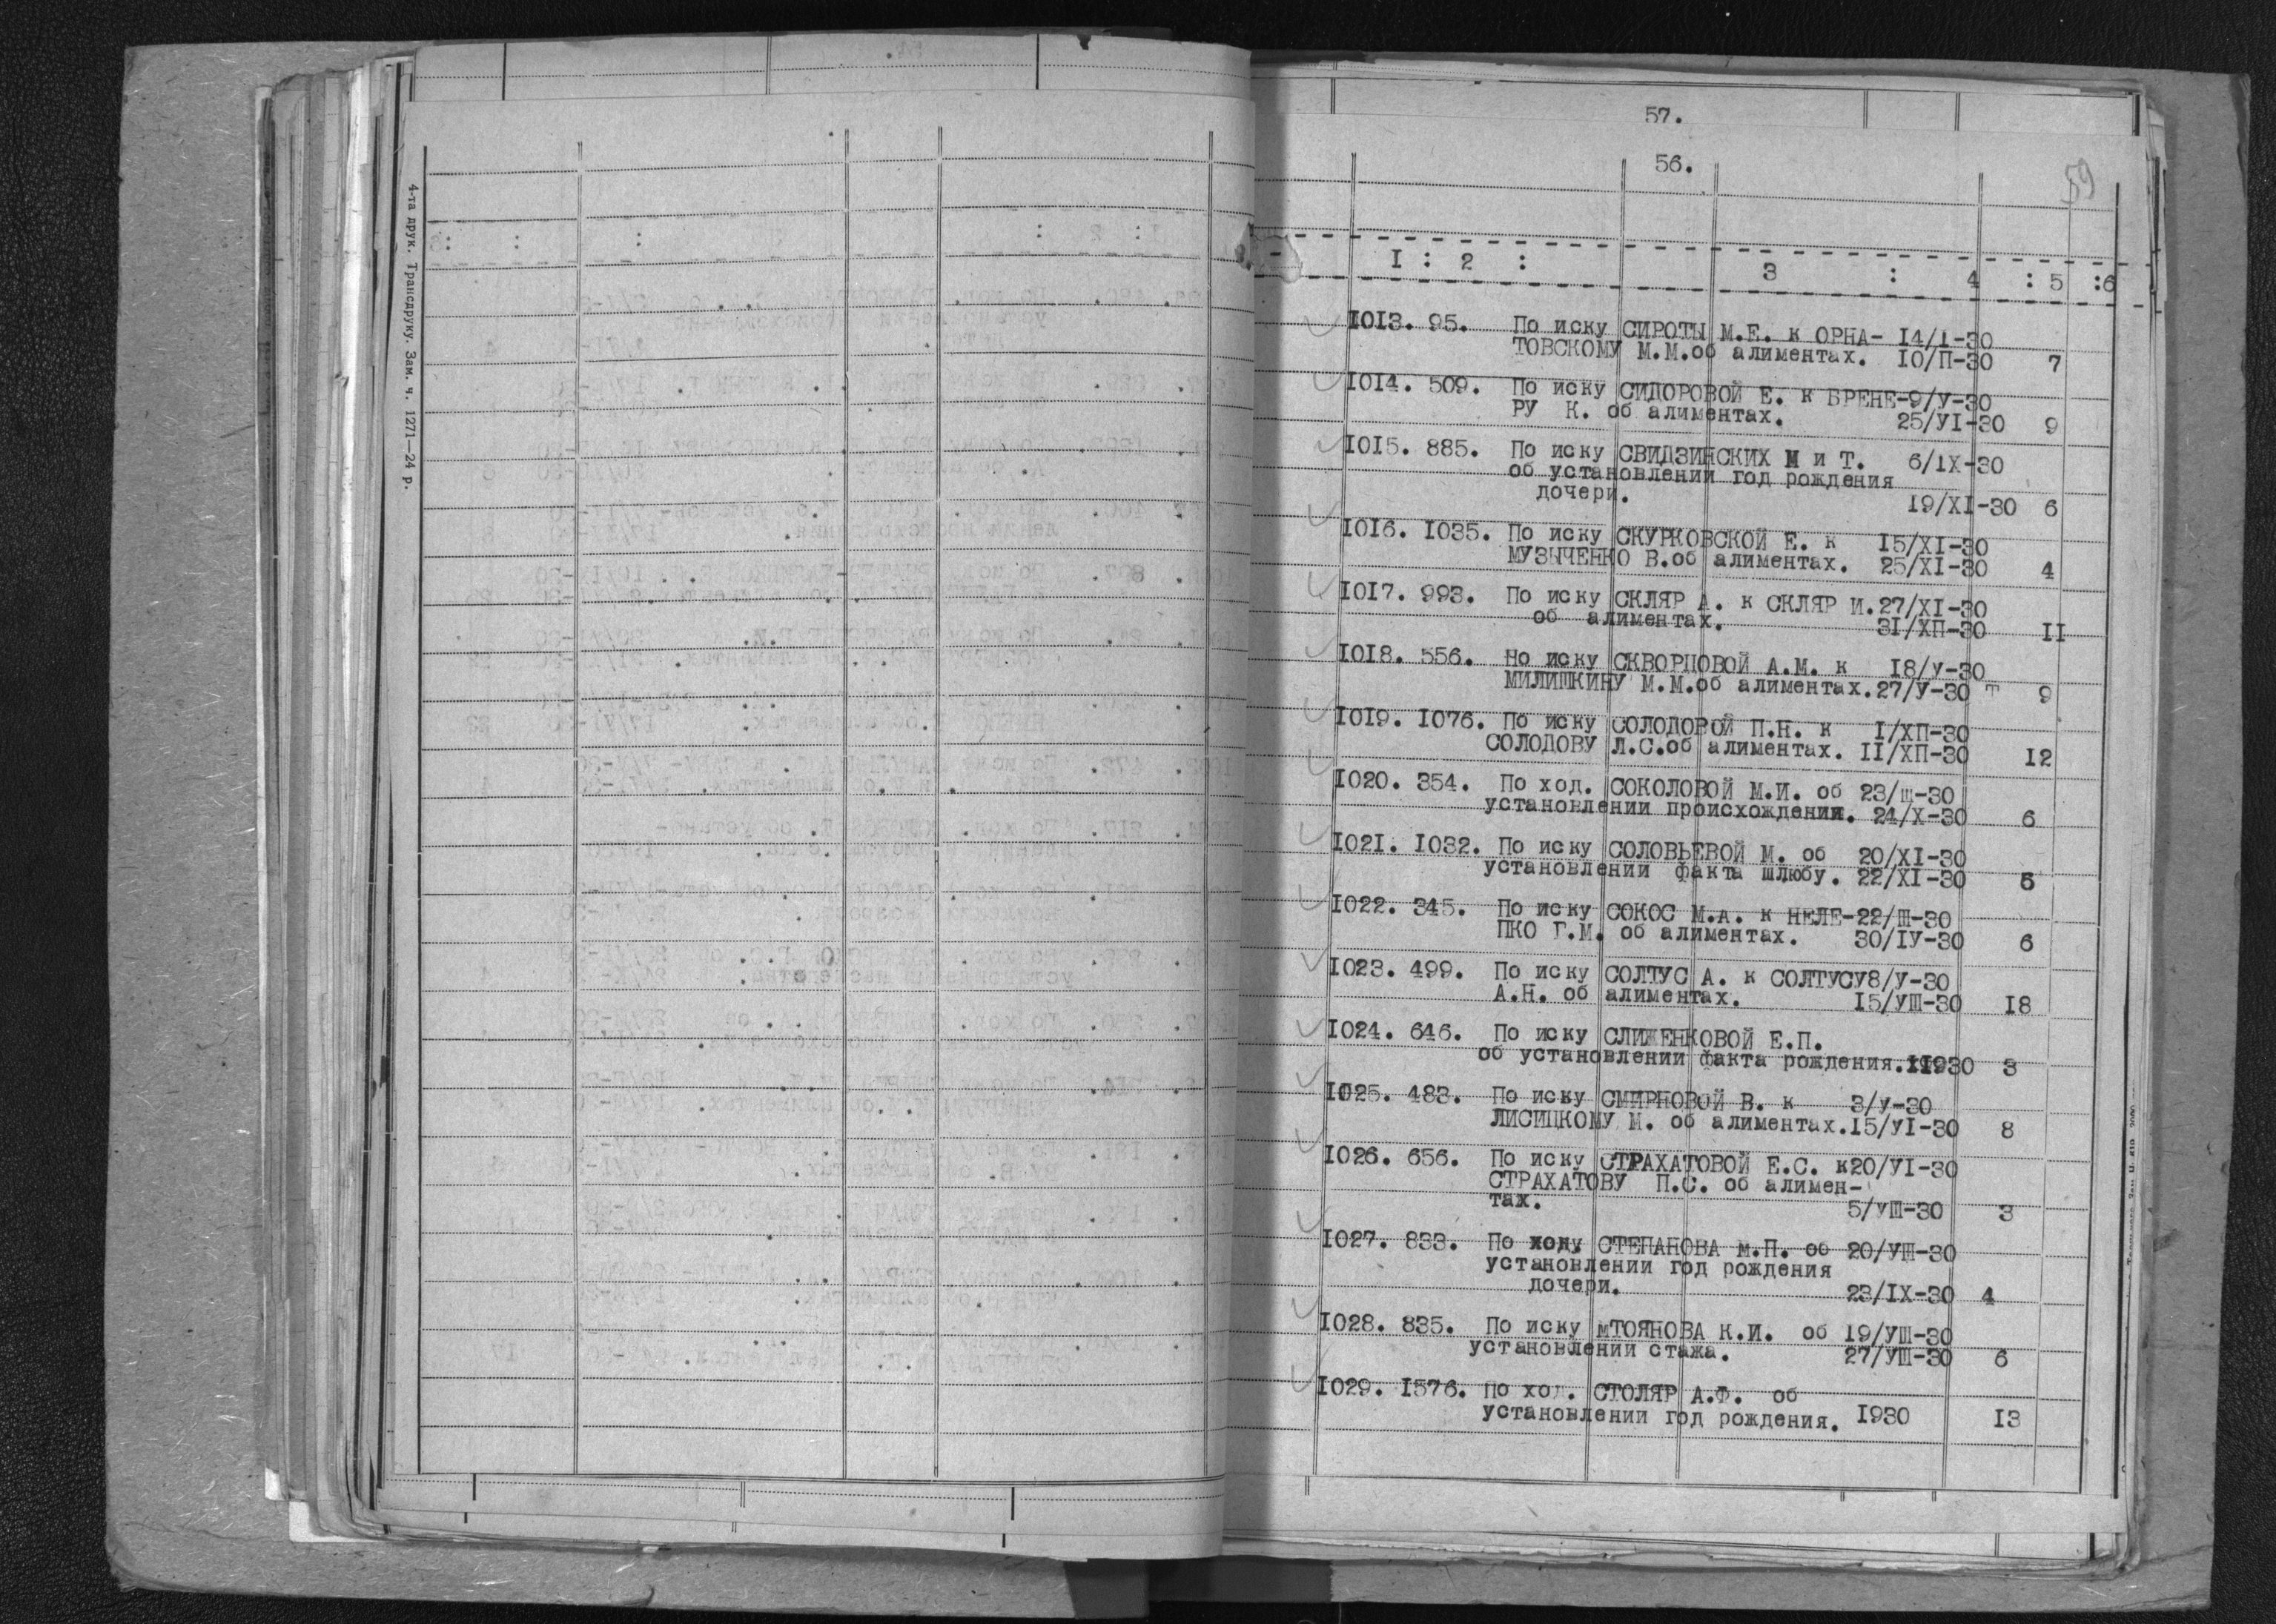 4-та друк. Трансдруку. Зам. ч. 1271—24 р.
57.
56.
59
1 : 2 : 3 : 4 : 5 :6
1013. 95. По иску СИРОТЫ М.Е. к ОРНА- 14/1-30
ТОВСКОМУ М.М.об алиментах. 10/П-30 7
1014. 509. По иску СИДОРОВОЙ Е. к БРЕНЕ-9/У-30
РУ К. об алиментах. 25/УІ-30 9
1015. 885. По иску СВИДЗИНСКИХ М и Т. 6/1Х-30
об установлении год рождения
дочери. 19/ХІ-30 6
1016. 1035. По иску СКУРКОВСКОЙ Е. к 15/ХІ-30
МУЗЫЧЕНКО В.об алиментах. 25/ХІ-30 4
1017. 993. По иску СКЛЯР А. к СКЛЯР И.27/ХІ-30
об алиментах. 31/ХП-30 11
1018. 556. Но иску СКВОРЦОВОЙ А.М. к 18/У-30
МИЛИШКИНУ М.М.об алиментах.27/У-30 т 9
1019. 1076. По иску СОЛОДОВОЙ П.Н. к І/ХП-30
СОЛОДОВУ Л.С.об алиментах. ІІ/ХП-30 12
1020. 354. По ход. СОКОЛОВОЙ М.И. об 23/ш-30
установлении происхождении. 24/Х-30 6
1021. 1032. По иску СОЛОВЬЕВОЙ М. об 20/ХІ-30
установлении факта шлюбу. 22/ХІ-30 5
1022. 345. По иску СОКОС М.А. к НЕЛЕ-22/Ш-30
ПКО Г.М. об алиментах. 30/ІУ-30 6
1023. 499. По иску СОЛТУС А. к СОЛТУСУ8/У-30
А.Н. об алиментах. 15/УШ-30 18
1024. 646. По иску СЛИЖЕНКОВОЙ Е.П.
об установлении факта рождения. 1930 3
1025. 483. По иску СМИРНОВОЙ В. к 3/У-30
ЛИСИЦКОМУ М. об алиментах.15/УІ-30 8
1026. 656. По иску СТРАХАТОВОЙ Е.С. к20/УІ-30
СТРАХАТОВУ П.С. об алимен-
тах. 5/УШ-30 3
1027. 833. По ходу СТЕПАНОВА М.П. об 20/УШ-30
установлении год рождения
дочери. 23/ІХ-30 4
1028. 835. По иску мТОЯНОВА К.И. об 19/УШ-30
установлении стажа. 27/УШ-30 6
1029. 1576. По ход. СТОЛЯР А.Ф. об
установлении год рождения. 1930 13